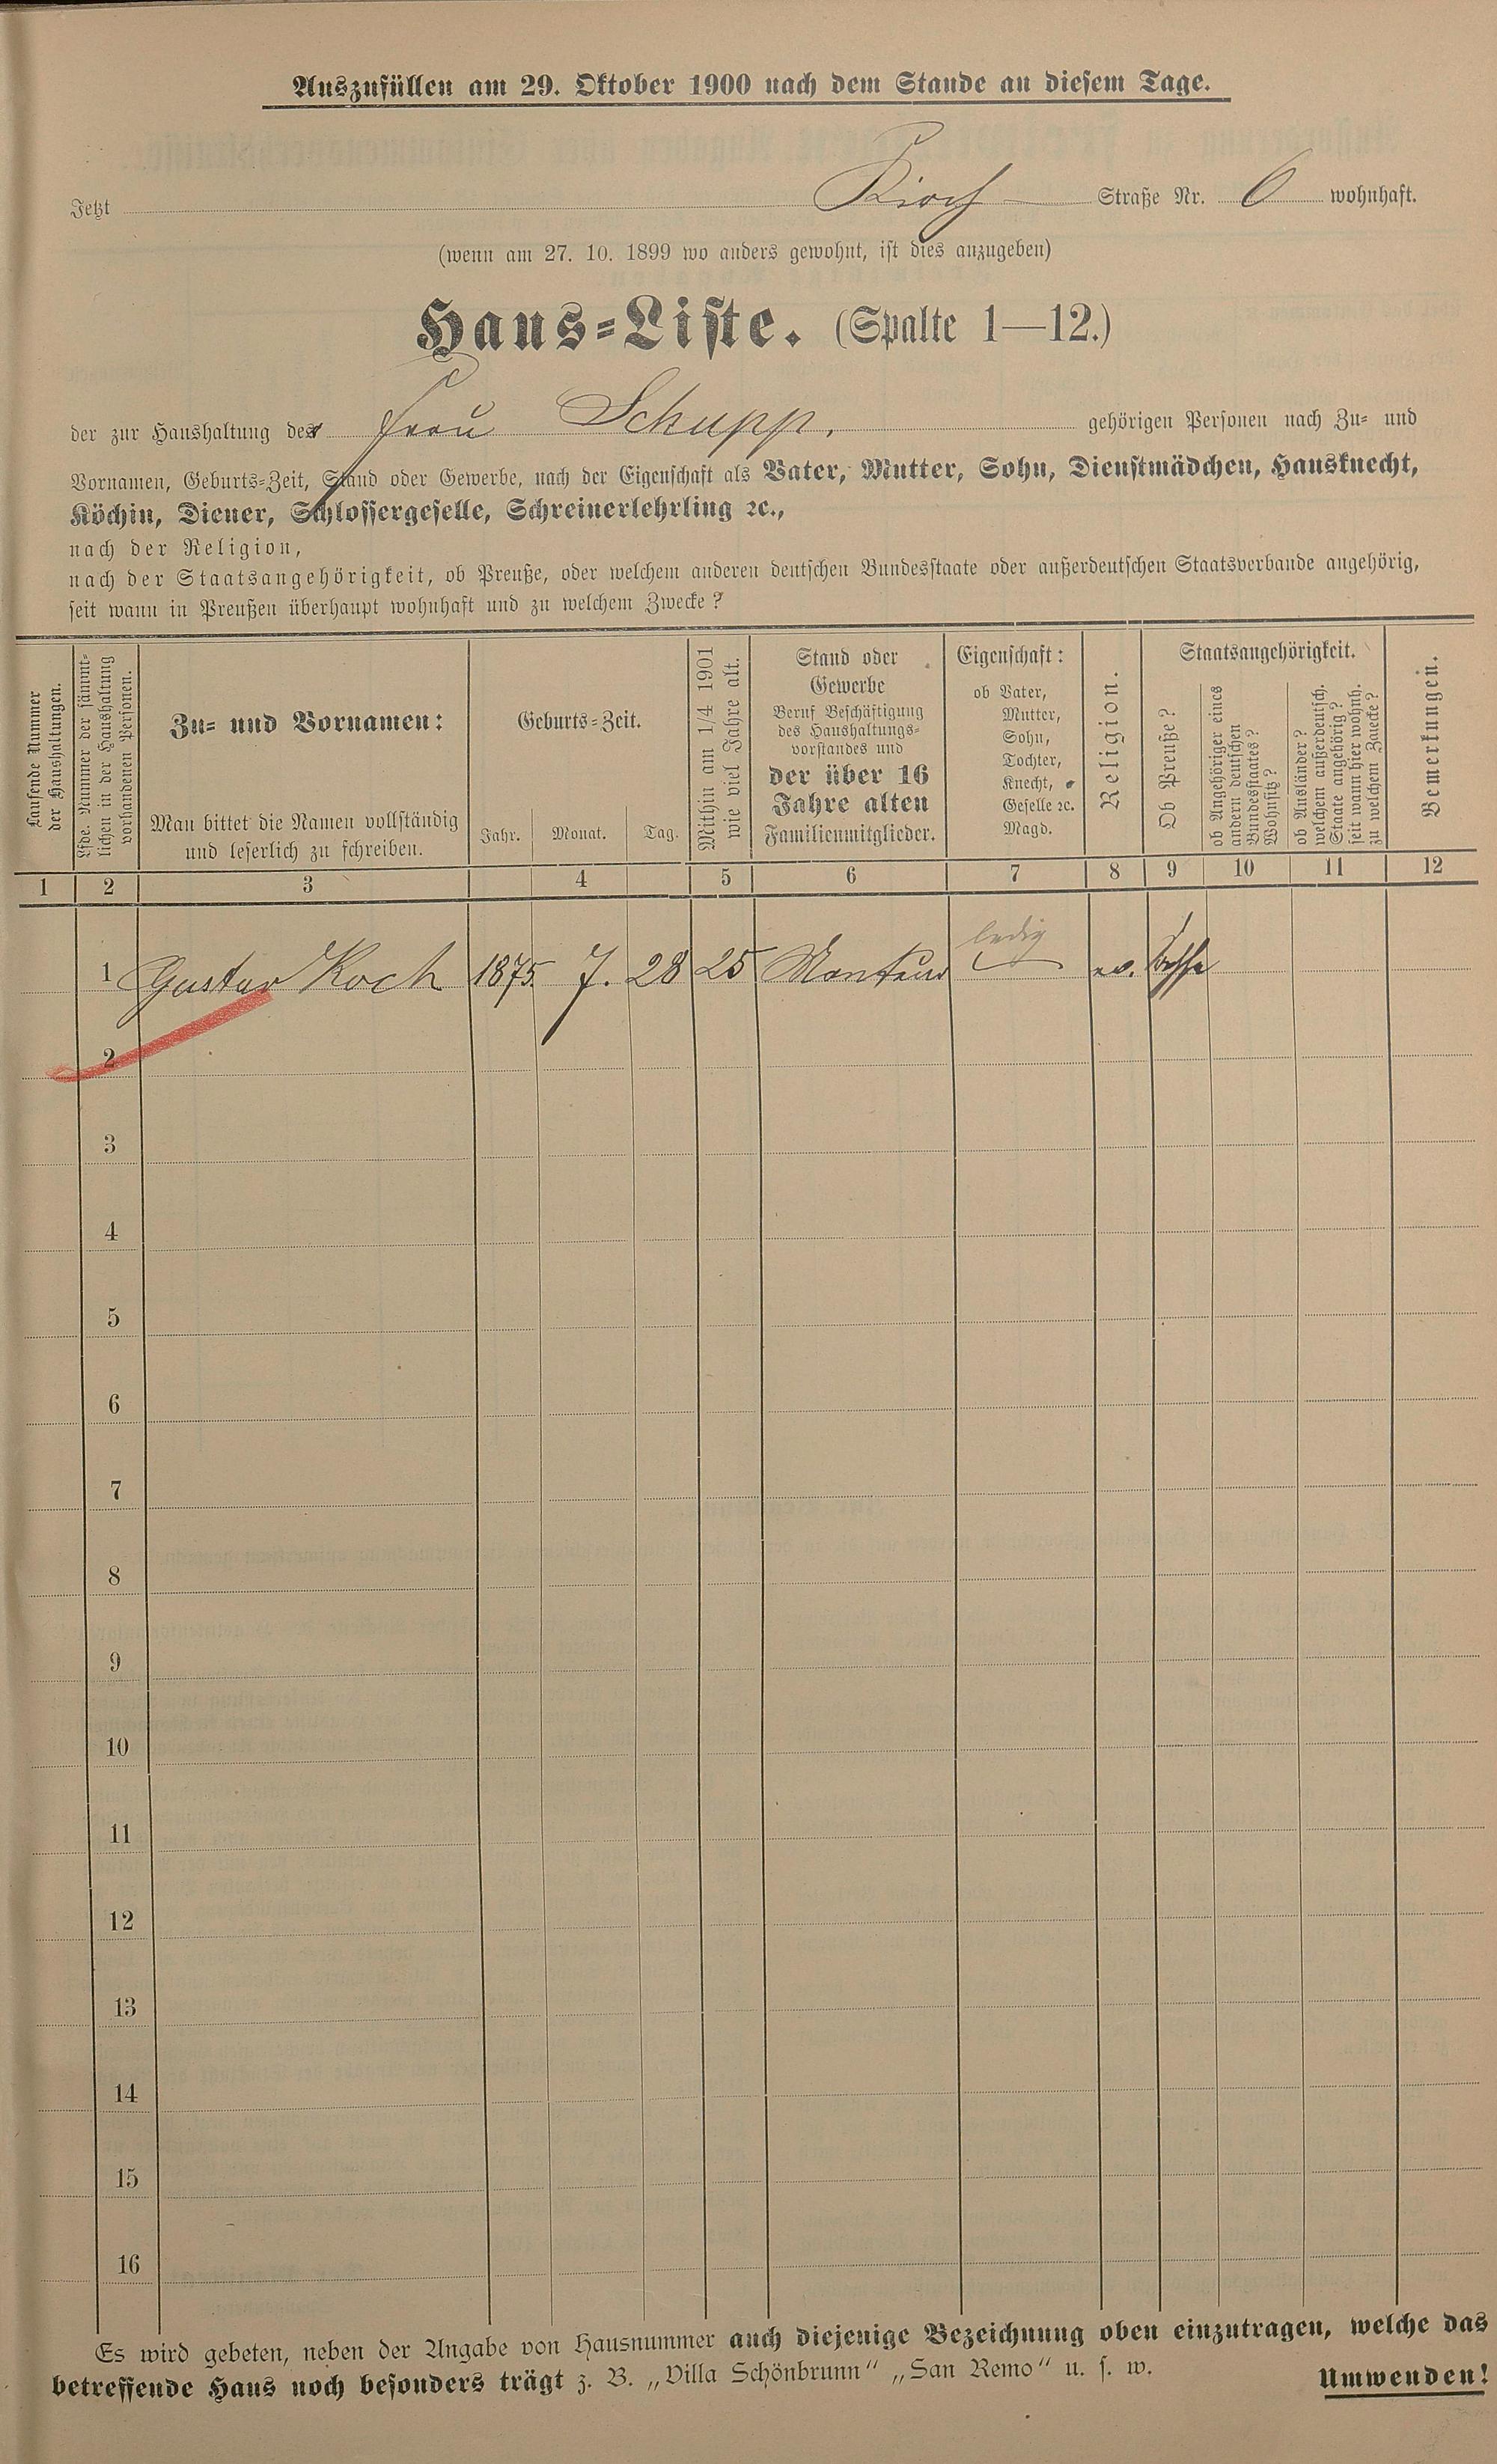 Auszufüllen am 29. Oktober 1900 nach dem Stande an diesem Tage.
Jetzt Kirch Straße Nr. 6 wohnhaft.
(wenn am 27. 10. 1899 wo anders gewohnt, ist dies anzugeben)
Haus-Liste. (Spalte 1—12.)
der zur Haushaltung der Frau Schupp. gehörigen Personen nach Zu- und
Vornamen, Geburts-Zeit, Stand oder Gewerbe, nach der Eigenschaft als Vater, Mutter, Sohn, Dienstmädchen, Hausknecht,
Köchin, Diener, Schlossergeselle, Schreinerlehrling ꝛc.,
nach der Religion,
nach der Staatsangehörigkeit, ob Preuße, oder welchem anderen deutschen Bundesstaate oder außerdeutschen Staatsverbande angehörig,
seit wann in Preußen überhaupt wohnhaft und zu welchem Zwecke?
Laufende Nummer
der Haushaltungen.
Lfde. Nummer der sämmt-
lichen in der Haushaltung
vorhandenen Personen.
Zu- und Vornamen:
Man bittet die Namen vollständig
und leserlich zu schreiben.
Geburts-Zeit.
Jahr. Monat. Tag.
Mithin am 1/4 1901
wie viel Jahre alt.
Stand oder
Gewerbe
Beruf Beschäftigung
des Haushaltungs-
vorstandes und
der über 16
Jahre alten
Familienmitglieder.
Eigenschaft:
ob Vater,
Mutter,
Sohn,
Tochter,
Knecht,
Geselle ꝛc.
Magd.
Religion.
Staatsangehörigkeit.
Ob Preuße?
ob Angehöriger eines
andern deutschen
Bundesstaates?
Wohnsitz?
ob Ausländer?
welchem außerdeutsch.
Staate angehörig?
seit wann hier wohnh.
zu welchem Zwecke?
Bemerkungen.
1 2 3 4 5 6 7 8 9 10 11 12
ledig
1 Gustav Koch 1875 7. 28 25 Monteur ev.
2
3
4
5
6
7
8
9
10
11
12
13
14
15
16
Es wird gebeten, neben der Angabe von Hausnummer auch diejenige Bezeichnung oben einzutragen, welche das
betreffende Haus noch besonders trägt z. B. „Villa Schönbrunn“ „San Remo“ u. s. w.
Umwenden!